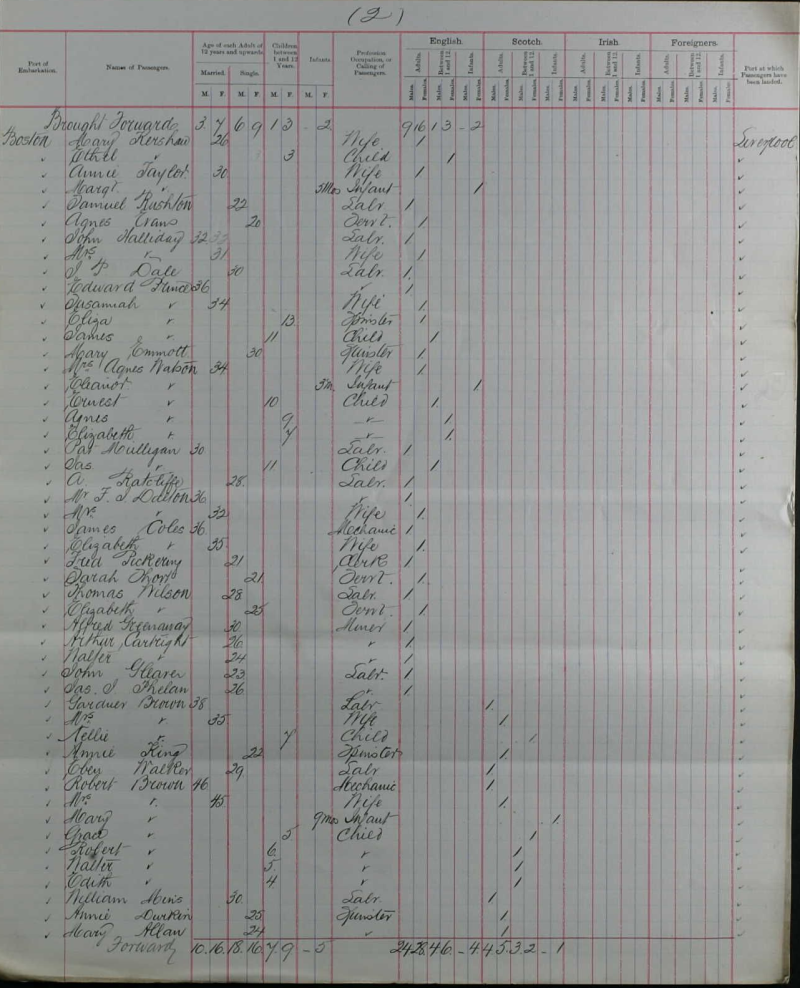 (2)
Port of Embarkation. Names of Passengers. Age of each Adult of 12 years and upwards. Children between 1 and 12 Years. Infants. Profession Occupation, or Calling of Passengers. English. Scotch. Irish. Foreigners. Port at which Passengers have been landed.
Married. Single. Adults. Between 1 and 12. Infants. Adults. Between 1 and 12. Infants. Adults. Between 1 and 12. Infants. Adults. Between 1 and 12. Infants.
M. F. M. F. M. F. M. F. Males. Females. Males. Females. Males. Females. Males. Females. Males. Females. Males. Females. Males. Females. Males. Females. Males. Females. Males. Females. Males. Females. Males. Females.
Brought Forward 3 7 6 9 1 3 - 2 9 16 1 3 - 2
Boston Mary Kershaw 26 Wife 1 Liverpool
✓ Ethel " 3 Child 1 ✓
✓ Annie Taylor 30 Wife 1 ✓
✓ Margt. " 3 Mos Infant 1 ✓
✓ Samuel Rushton 22 Labr 1 ✓
✓ Agnes Evans 20 Servt. 1 ✓
✓ John Halliday 32 Labr. 1 ✓
✓ Mrs " 31 Wife 1 ✓
✓ Dale 30 Labr. 1 ✓
✓ Edward 36 " 1 ✓
✓ Susannah " 34 Wife 1 ✓
✓ Eliza " 13 Spinster 1 ✓
✓ James " 11 Child 1 ✓
✓ Mary Emmott 30 Spinster 1 ✓
✓ Mrs Agnes Watson 34 Wife 1 ✓
✓ Eleanor " 3 m. Infant 1 ✓
✓ Ernest " 10 Child 1 ✓
✓ Agnes " 9 " 1 ✓
✓ Elizabeth " 7 " 1 ✓
✓ Pat Mulligan 30 Labr. 1 ✓
✓ Jas. " 11 Child 1 ✓
✓ A. Ratcliffe 28 Labr. 1 ✓
✓ Mr F. J. 36 " 1 ✓
✓ Mrs " 32 Wife 1 ✓
✓ James Coles 36 Mechanic 1 ✓
✓ Elizabeth " 35 Wife 1 ✓
✓ Fred Pickering 21 Clerk 1 ✓
✓ Sarah 21 Servt. 1 ✓
✓ Thomas Wilson 28 Labr. 1 ✓
✓ Elizabeth " 25 Servt. 1 ✓
✓ Alfred Greenaway 30 Miner 1 ✓
✓ Arthur Cartright 26 " 1 ✓
✓ Walter " 24 " 1 ✓
✓ John 23 Labr. 1 ✓
✓ Jas. J. Phelan 26 " 1 ✓
✓ Gardner Brown 38 Labr 1 ✓
✓ Mrs " 35 Wife 1 ✓
✓ Nellie " 7 Child 1 ✓
✓ Annie King 22 Spinster 1 ✓
✓ Walker 29 Labr 1 ✓
✓ Robert Brown 46 Mechanic 1 ✓
✓ Mrs " 45 Wife 1 ✓
✓ Mary " 9 mos Infant 1 ✓
✓ Grace " 5 Child 1 ✓
✓ Robert " 6 " 1 ✓
✓ Walter " 5 " 1 ✓
✓ Edith " 4 " 1 ✓
✓ William Mins 30 Labr. 1 ✓
✓ Annie Durkin 25 Spinster 1 ✓
✓ Mary Allan 24 " 1 ✓
Forward 10. 16. 18. 16. 7. 9 - 5 24 28. 4 6. - 4. 4 5. 3. 2 - 1